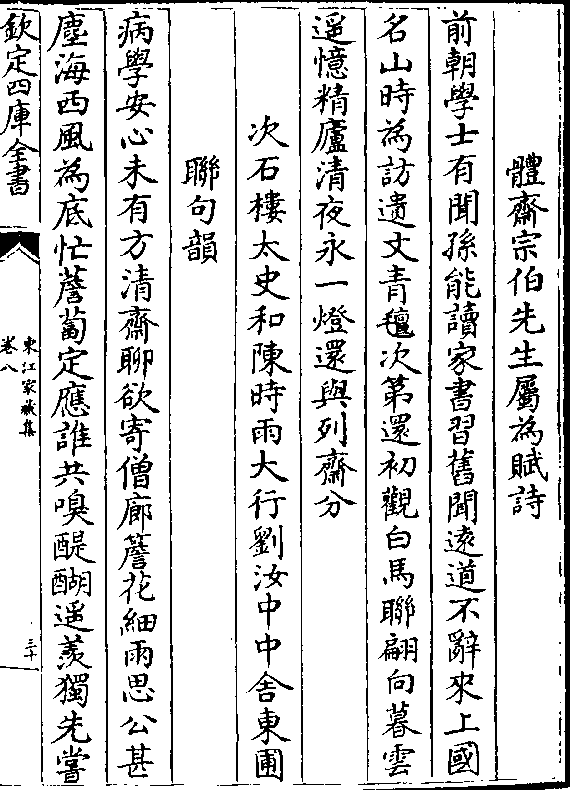 體齋宗伯先生屬為賦詩
前朝學士有聞孫能讀家書習舊聞遠道不辭來上國
名山時為訪遺文青氊次第還初觀白馬聯翩向暮雲
遥憶精廬清夜永一燈還與列齋分
次石樓太史和陳時雨大行劉汝中中舍東圃
聯句韻
病學安心未有方清齋聊欲寄僧廊簷花細雨思公甚
塵海西風為底忙薝蔔定應誰共嗅醍醐遥羨獨先嘗
欽定四庫全書
東江家藏集
卷八
三十